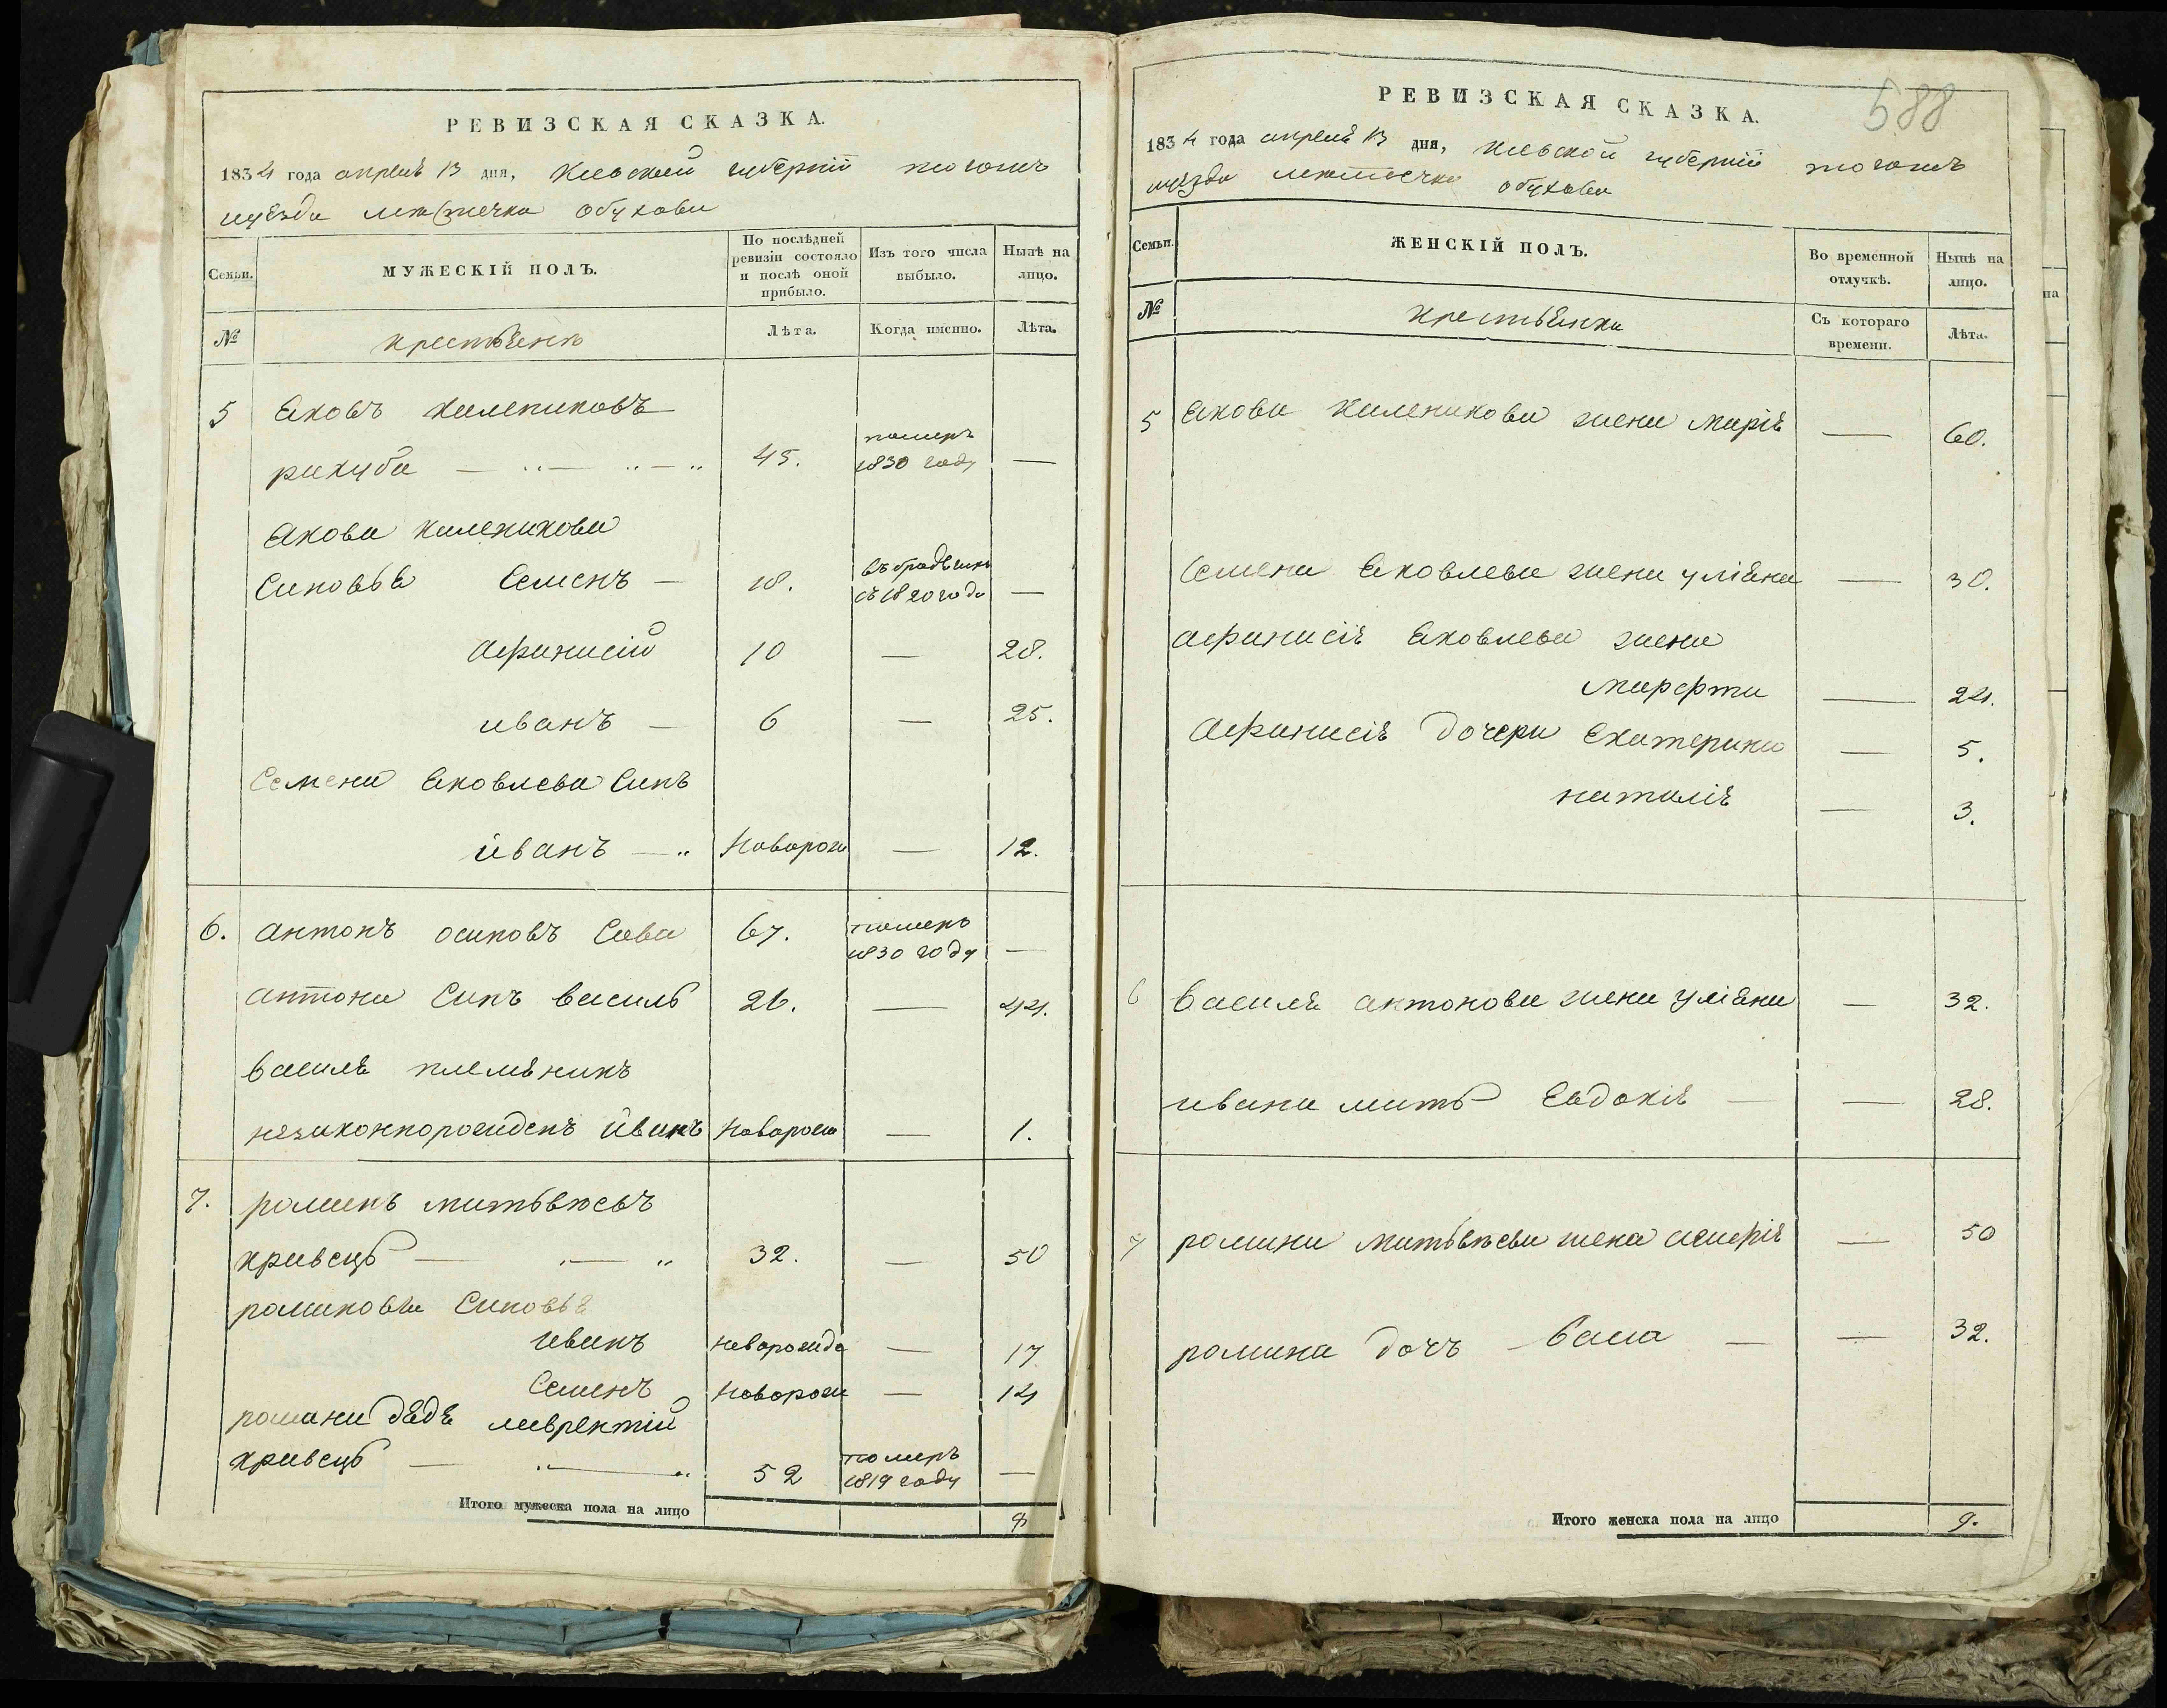 РЕВИЗСКАЯ СКАЗКА.
1834 года апреля 13 дня, Киевской губернии тогожъ
уезда местечка Обухова
Семьи.
МУЖЕСКІЙ ПОЛЪ.
По послѣдней ревизіи состояло и послѣ оной прибыло.
Изъ того числа выбыло.
Нынѣ на лицо.
№
крестьяне
Лѣта.
Когда именно.
Лѣта.
5 Яковъ Калениковъ
рахуба 45. померъ 1830 году —
Якова Каленикова
Синовья Семенъ — 18. въ бродягахъ съ 1820 года —
Афанасий 10 — 28.
иванъ — 6 — 25.
Семена Яковлева Синъ
иванъ — Новорож — 12.
6. антонъ осиповъ Сава 67. померъ 1830 году —
антона Синъ василь 26. — 44.
василя племяникъ
незаконнорожденъ иванъ Новорож — 1.
7. романъ матвѣевъ
кривець — 32. — 50
романовы Синовья
иванъ Новорожде — 17
Семенъ Новорож — 14
романа дядя лаврентий
кривець — 52 померъ 1819 году —
Итого мужеска пола на лицо 8
588
РЕВИЗСКАЯ СКАЗКА.
1834 года апреля 13 дня, Киевской губернии тогожъ
уезда местечка Обухова
Семьи.
ЖЕНСКІЙ ПОЛЪ.
Во временной отлучкѣ.
Нынѣ на лицо.
№
крестьянки
Съ котораго времени.
Лѣта.
5 Якова Каленикова жена Марія — 60.
Семена Яковлева жена уліяна — 30.
афанасія Яковлева жена
Марфта — 24.
Афанасія дочери Екатерина — 5.
наталія — 3.
6 василя антонова жена уліяна — 32.
ивана мать Евдокія — 28.
7 романа матвѣева жена — 50
романа дочъ — 32.
Итого женска пола на лицо 9.